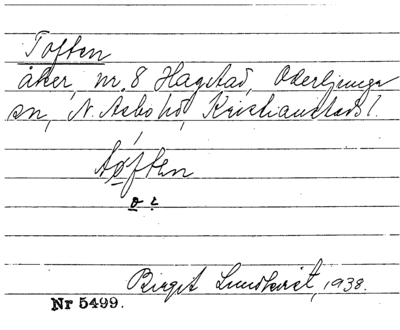 Toften
åker, nr. 8 Hagstad, Oderljunga
sn, N. Åsbo hd, Kristianstads l.
tǿften
o 2
Birgit Lundkvist, 1938.
Nr 5499.